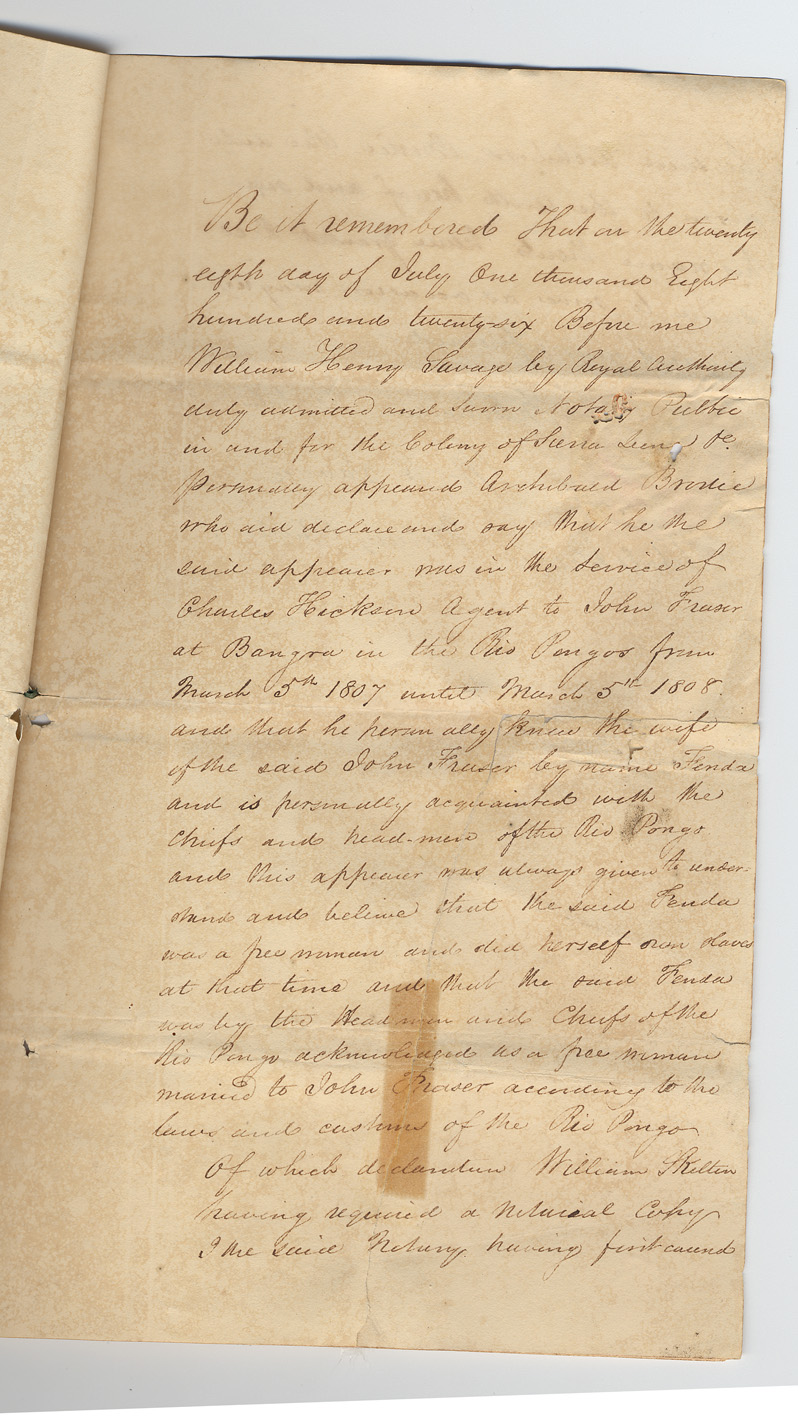 Be it remembered That on the twenty
eigth day of July One thousand Eight
hundred and twenty-six Before me
William Henry Savage by Royal Authority
duly admitted and sworn Notary Public
in and for the Colony of Sierra Leone &c.
Personally appeared Archibald Brodie
who did declare and say that he the
said appearer was in the Service of
Charles Hickson Agent to John Fraser
at Bangra in the Rio Pongos from
March 5th 1807 until March 5th 1808.
and that he personally knew the wife
of the said John Fraser by name Fenda
and is personally acquainted with the
Chiefs and head-men of the Rio Pongo
and this appearer was always given to under-
stand and believe that the said Fenda
was a free woman and did herself own slaves
at that time and that the said Fenda
was by the Headmen and Chiefs of the
Rio Pongo acknowledged as a free woman
married to John Fraser according to the
laws and customs of the Rio Pongo
Of which declaration William Skelton
having required a Notarial Copy
I the said Notary having first caused